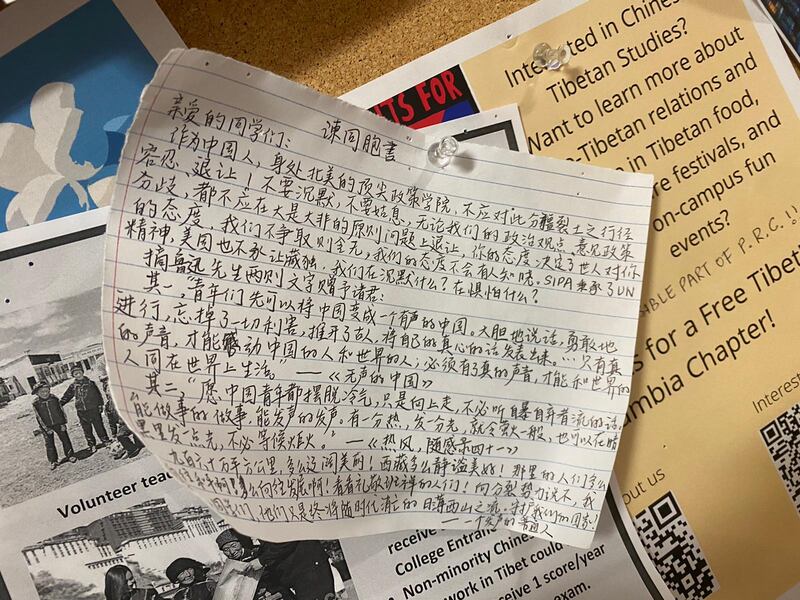 諫同胞書
亲爱的同学们:
作为中国人,身处北美的顶尖政策学院,不应对此分疆裂土之行径
容忍、退让!不要沉默,不要姑息,无论我们的政治观点、意见政策
分歧,都不应在大是大非的原则问题上退让,你的态度,决定了世人对你
的态度。我们不争取则全无,我们的态度不会有人知晓。SIPA秉承了UN
精神,美国也不承认藏独,我们在沉默什么?在惧怕什么?
摘鲁迅先生两则文字赠予诸君:
其一,"青年们先可以将中国变成一个有声的中国。大胆地说话,勇敢地
进行,忘掉了一切利害,推开了古人,将自己的真心的话发表出来。…只有真
的声音,才能感动中国的人和世界的人;必须有了真的声音,才能和世界的
人同在世界上生活。"——《无声的中国》
其二,"愿中国青年都摆脱冷气,只是向上走,不必听自暴自弃者流的话,
能做事的做事,能发声的发声。有一分热,发一分光,就令萤火一般,也可以在暗
黑里发一点光,不必等候炬火。"——《热风,随感录四十一》
九百六十万平方公里,多么辽阔美丽!西藏多么静谧美好!那里的人们多么
多么向往发展啊!看看 的人们!向分裂势力说不,我
他们只是终将随时代消亡的日薄西山之流。守护我们的国家
——一个发声的普通人
TS FOR
Interested in Chinese
Tibetan Studies?
Want to learn more about
-Tibetan relations and
in Tibetan food,
re festivals, and
on-campus fun
events?
ABLE PART OF P.R.C.!
s for a Free Tibet
mbia Chapter!
Interest
out us
Volunteer tea
receive
College Entran
Non-minority Chines
work in Tibet could
receive 1 score/year
exam.